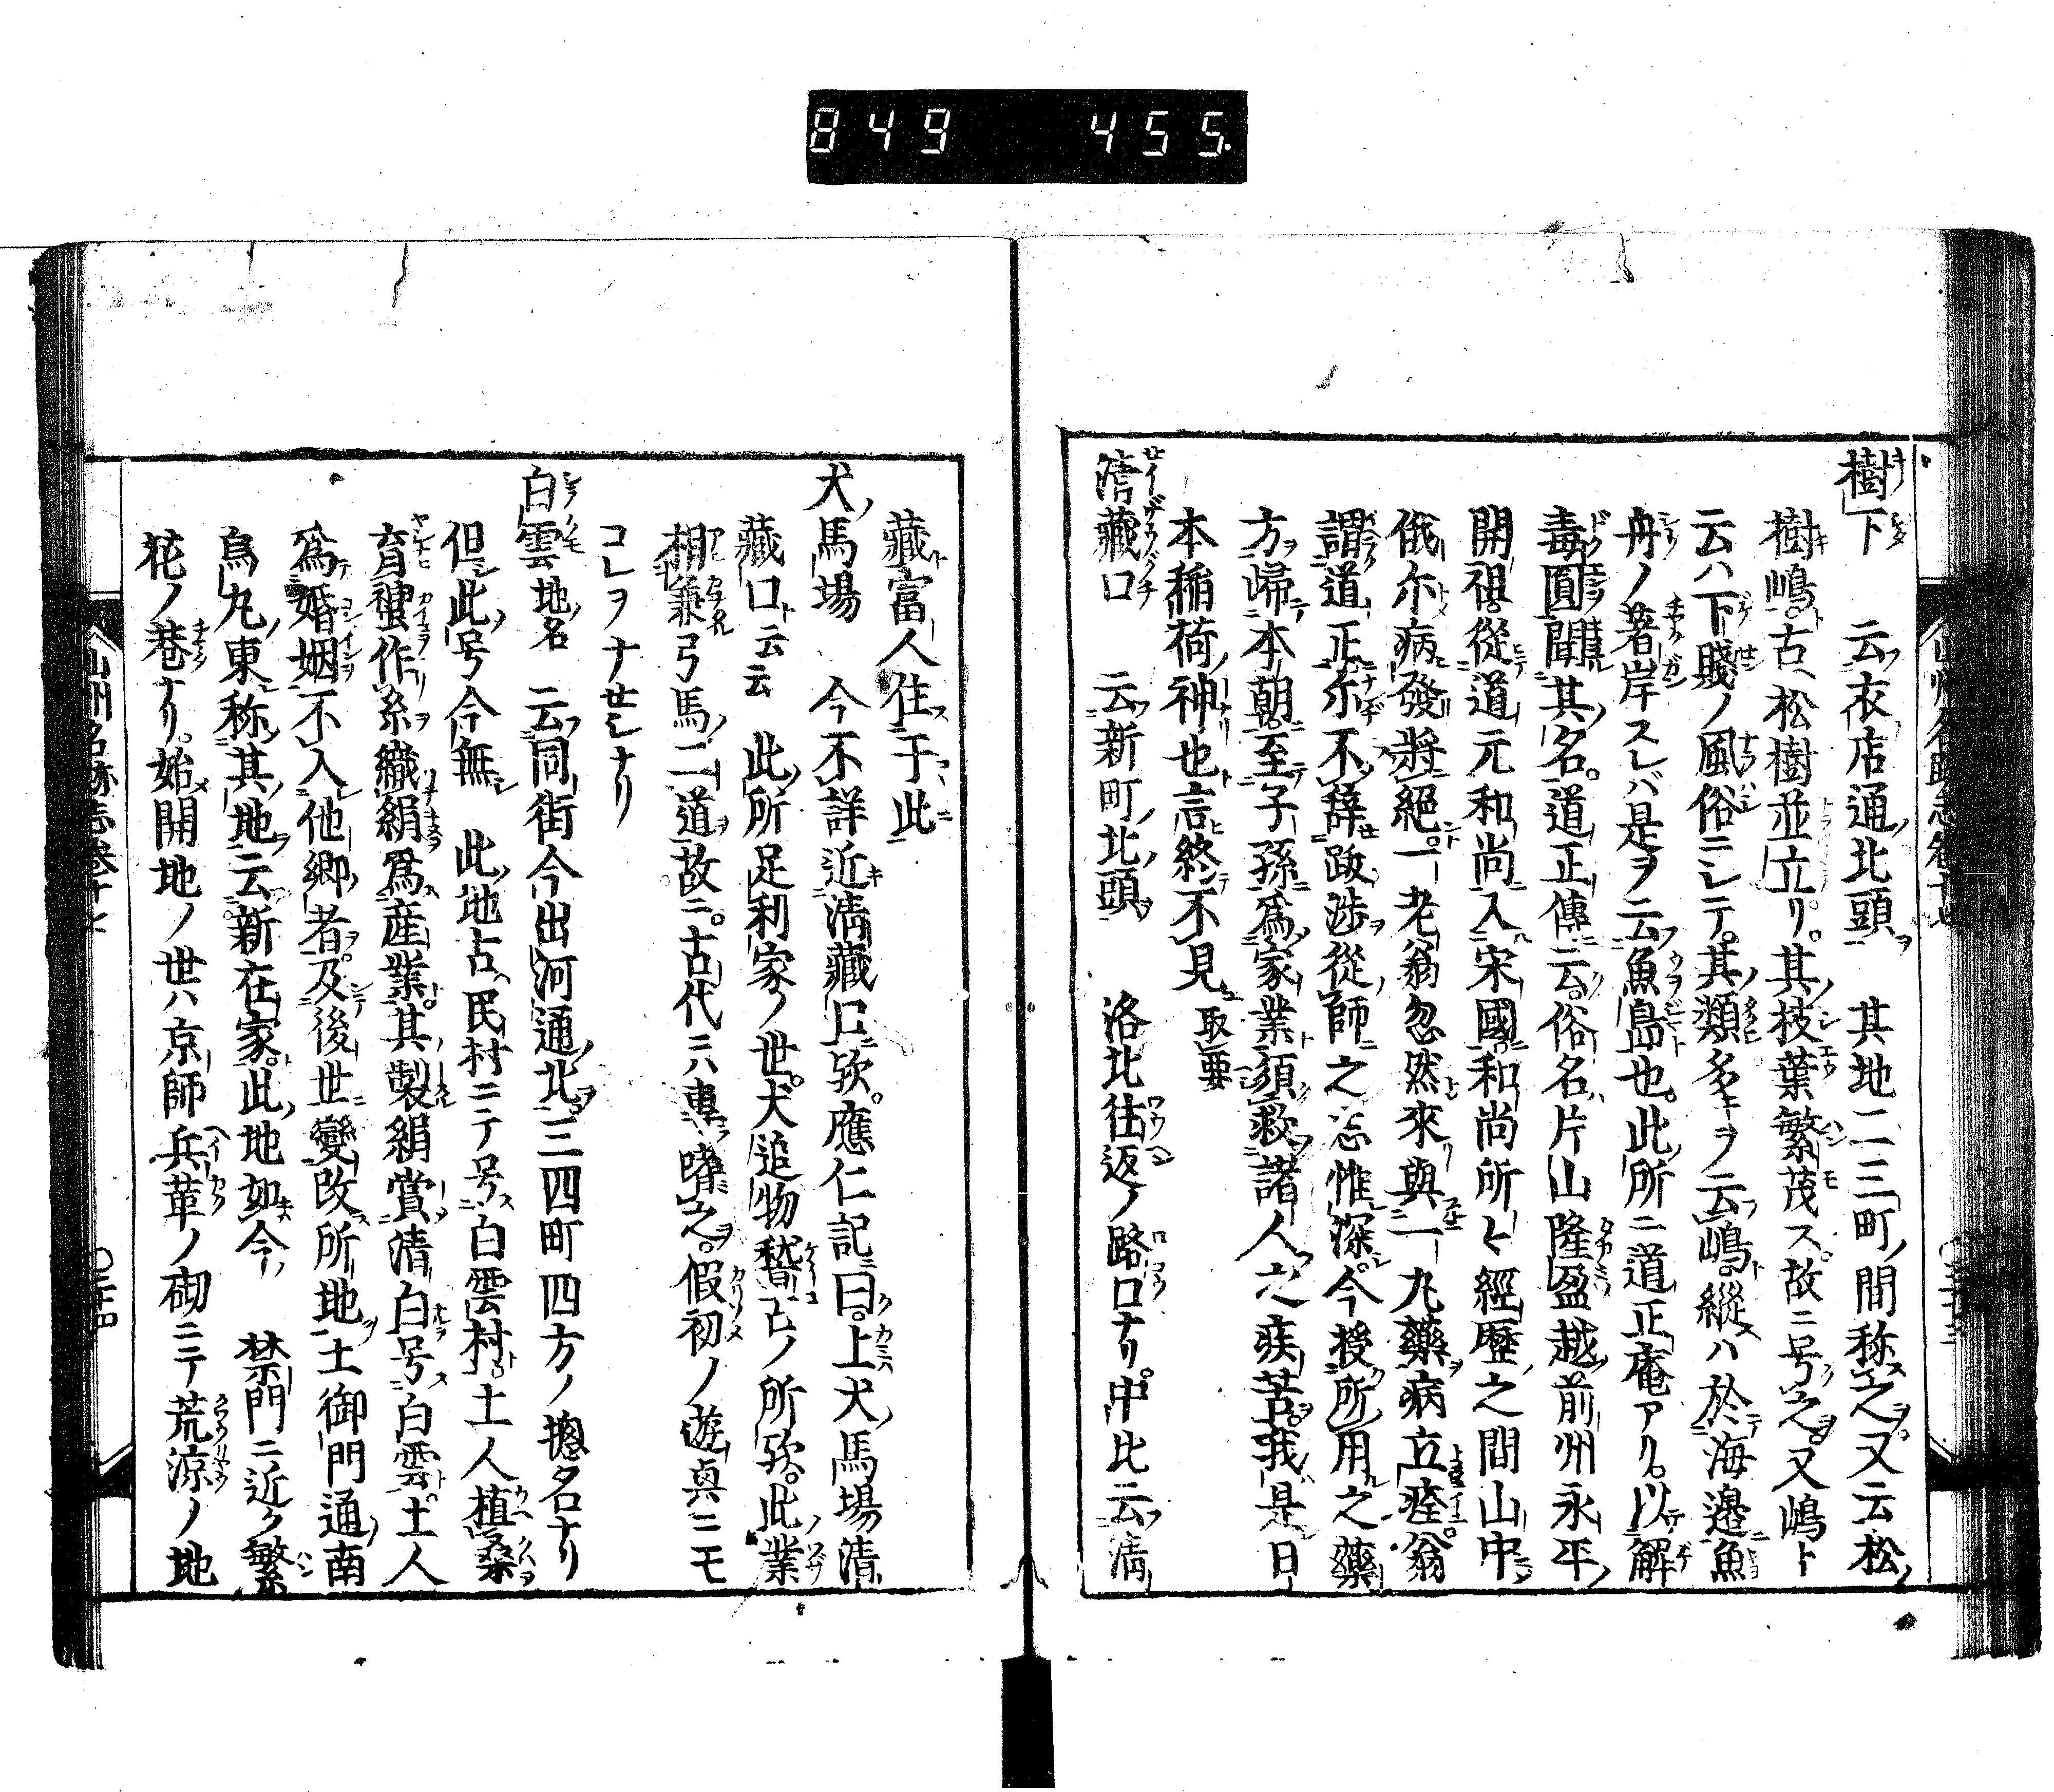 849 455.
樹下 云衣店通北頭 其地二三町ノ間称之又云松ノ
樹嶋古ヘ松樹並立リ其枝葉繁茂ス故ニ号之又嶋ト
云ハ下賤ノ風俗ニシテ其類多キヲ云嶋縦ハ於海邊魚
舟ノ著岸スレバ是ヲ云魚島也此所ニ道正庵アリ以解
毒圓聞其名道正傳云俗名片山隆盈越前州永平
開祖從道元和尚入宋國和尚所々經歴之間山中
俄尓病發將絕一老翁忽然來與一丸藥病立痊翁
謂道正尓不辞跋渉從師之志惟深今授所用之藥
方歸本朝至子孫為家業須救諸人之疾苦我是日
本稲荷神也言終不見 取要
清藏口 云新町北頭 洛北往返ノ路口ナリ中比云清
山州名跡志巻十七
藏富人住于此
犬馬場 今不詳近清藏口歟應仁記曰上犬馬場清
藏口云云 此所足利家ノ世犬追物稽古ノ所歟此業
相兼弓馬二道故ニ古代ニハ專嗜之假初ノ遊興ニモ
コレヲナセシナリ
白雲地名 云同街今出河通北三四町四方ノ摠名ナリ
但此号今無 此地古ヘ民村ニテ号白雲村土人植桑
育蚕作糸織絹為産業其製絹賞清白号白雲土人
為婚姻不入他郷者及後世變改所地土御門通南
烏丸東称其地云新在家此地如今 禁門ニ近ク繁
花ノ巷ナリ始開地ノ世ハ京師兵革ノ砌ニテ荒涼ノ地
山州名跡志巻十七